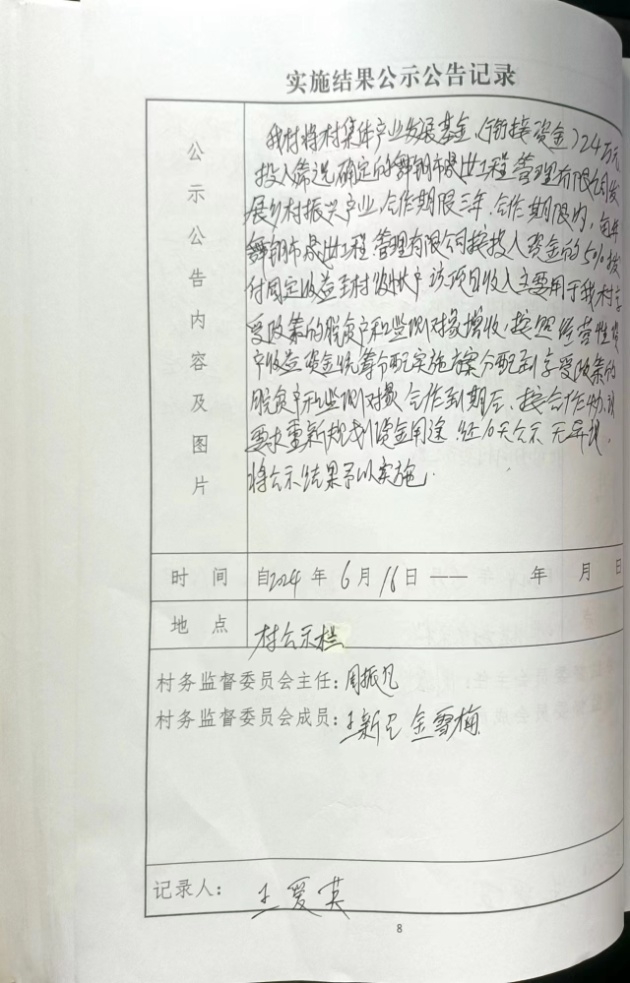 实施结果公示公告记录
公示公告内容及图片
我村将村集体产业发展基金(衔接资金)24万元
投入筛选确定的舞钢市 工程管理有限公司发
展乡村振兴产业,合作期限三年.合作期限内,每年
舞钢市 工程管理有限公司按投入资金的5%拨
付固定收益至村 账户 该项目收入主要用于我村享
受政策的脱贫户和监测对象增收,按照经营性资
产收益资金统筹分配实施方案分配到享受政策的
脱贫户和监测对象 合作到期后、按合作协议
要求重新规划资金用途.经10天公示 无异议,
将公示结果予以实施.
时间 自2024年6月16日——年月日
地点 村公示栏
村务监督委员会主任:周振凡
村务监督委员会成员:王新 金雪梅
记录人:王爱英
8